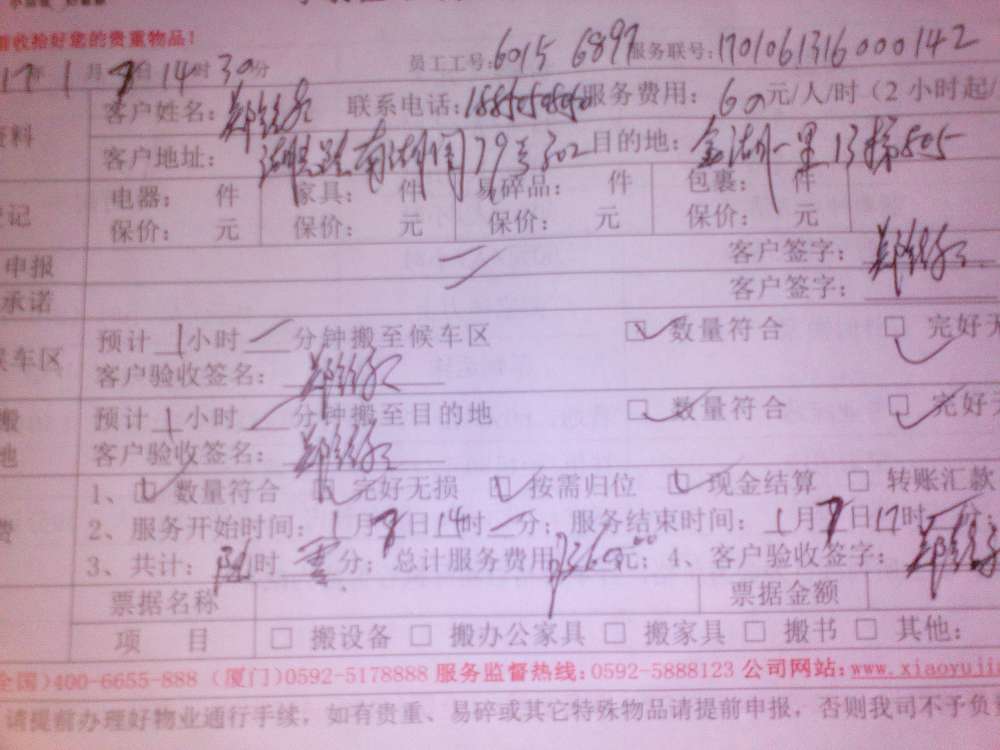 收拾好您的贵重物品!
17年1月8日14时30分 员工工号:6015 6897 服务联号:1701061316000142
资料 客户姓名: 联系电话: 服务费用: 60元/人/时(2小时起/
客户地址: 79号302 目的地: 金湖一里13梯505
登记 电器: 件 家具: 件 易碎品: 件 包裹: 件
保价: 元 保价: 元 保价: 元 保价: 元
申报 客户签字:
承诺 客户签字:
候车区 预计1小时一分钟搬至候车区 ☑ 数量符合 ☑ 完好无
客户验收签名:
搬 预计1小时一分钟搬至目的地 ☑ 数量符合 ☑ 完好无
地 客户验收签名:
1、☑ 数量符合 ☑ 完好无损 ☑ 按需归位 ☑ 现金结算 □ 转账汇款
费 2、服务开始时间: 1月8日14时一分; 服务结束时间: 1月8日17时一分;
3、共计: 时 分; 总计服务费用 360.00元; 4、客户验收签字:
票据名称 票据金额
项 目 □ 搬设备 □ 搬办公家具 □ 搬家具 □ 搬书 □ 其他:
全国)400-6655-888 (厦门)0592-5178888 服务监督热线:0592-5888123 公司网站:www.xiaoyuji
请提前办理好物业通行手续，如有贵重、易碎或其它特殊物品请提前申报，否则我司不予负